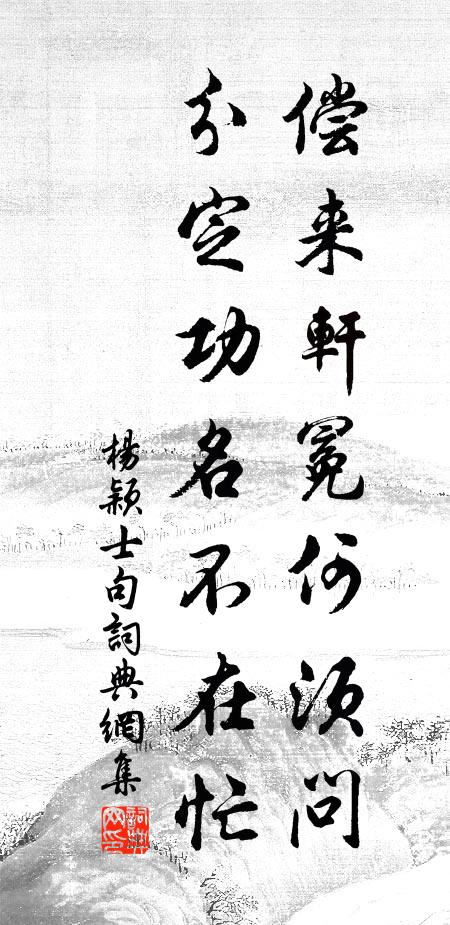 偿来軒冕何須問
分定功名不在忙
楊穎士句詞典網集